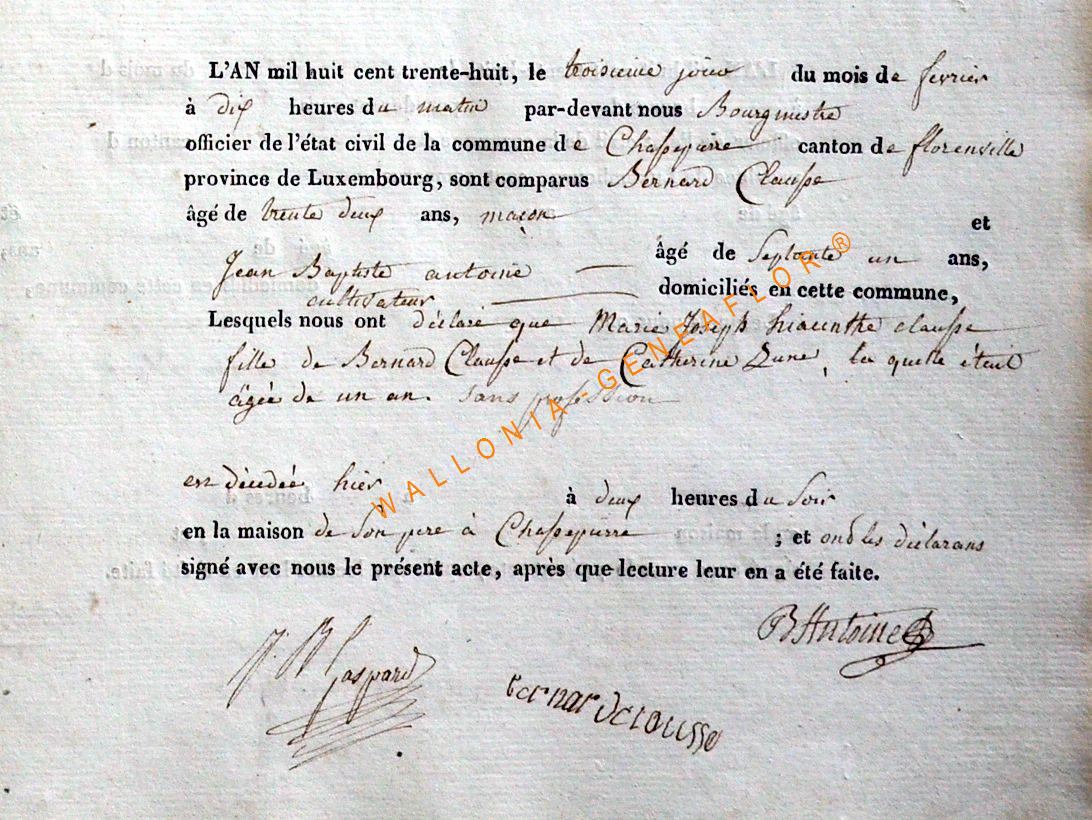 L'AN mil huit cent trente-huit, le troisieme jour du mois de fevrier
à dix heures du matin par-devant nous Bourgmestre
officier de l'état civil de la commune de Chassepierre canton de florenville
province de Luxembourg, sont comparus Bernard Clausse
âgé de trente deux ans, maçon et
Jean Baptiste antoine âgé de Septante un ans,
cultivateur domiciliés en cette commune,
Lesquels nous ont déclaré que Marie Joseph hiacinthe clausse
fille de Bernard Clausse et de Catherine Lune, la quelle éteit
âgée de un an. sans profession
est décédée hier à deux heures du Soir
en la maison de Son pere à Chassepierre ; et ond les déclarans
signé avec nous le présent acte, après que lecture leur en a été faite.
J. B. Gaspard
BAntoine
bernard clousse
WALLONIA-GENEAFLOR®